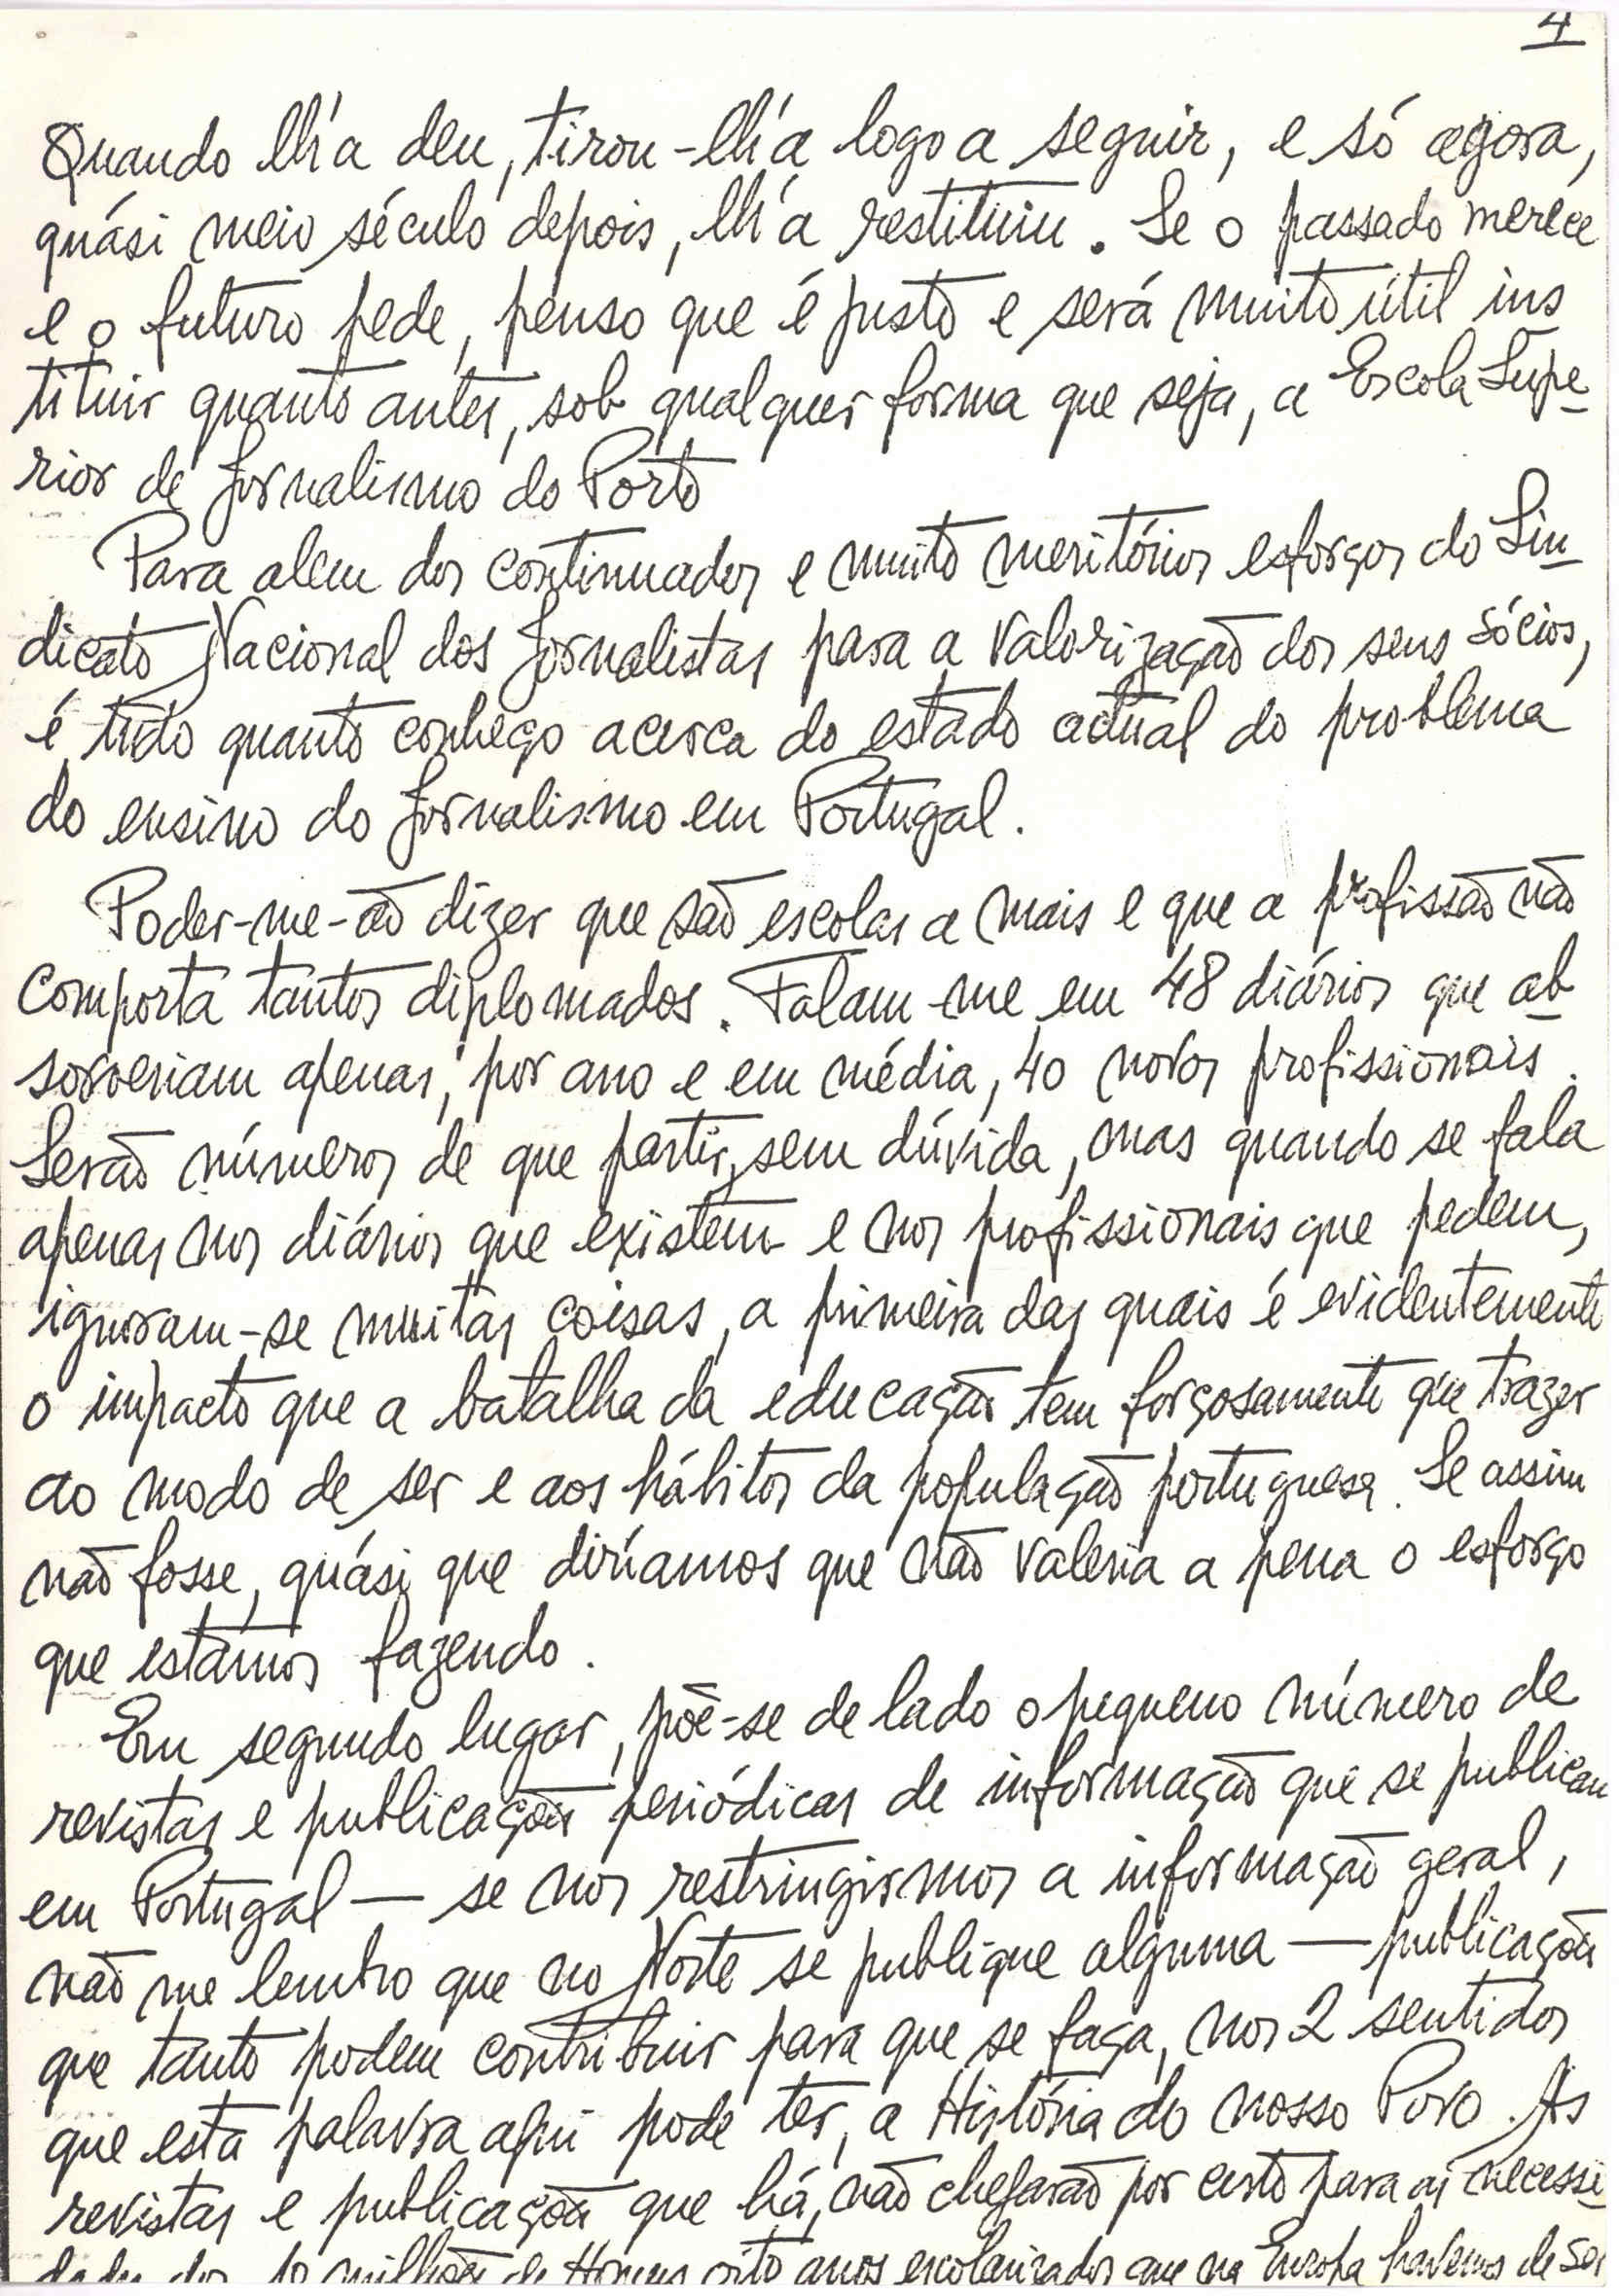 4
Quando lh'a deu, tirou-lh'a logo a seguir, e só agora,
quási meio século depois, lh'a restituiu. Se o passado merece
e o futuro pede, penso que é justo e será muito útil ins
tituir quanto antes, sob qualquer forma que seja, a Escola Supe-
rior de Jornalismo do Porto
Para alem dos continuados e muito meritórios esforços do Sin-
dicato Nacional dos Jornalistas para a valorização dos seus sócios,
é tudo quanto conheço acerca do estado actual do problema
do ensino do Jornalismo em Portugal.
Poder-me-ão dizer que são escolas a mais e que a profissão não
comporta tantos diplomados. Falam-me em 48 diários que ab-
sorveriam apenas, por ano e em média, 40 novos profissionais.
Serão números de que partir, sem dúvida, mas quando se fala
apenas nos diários que existem e nos profissionais que pedem,
ignoram-se muitas coisas, a primeira das quais é evidentemente
o impacto que a batalha da educação tem forçosamente que trazer
ao modo de ser e aos hábitos da população portuguesa. Se assim
não fosse, quási que diríamos que não valeria a pena o esforço
que estamos fazendo.
Em segundo lugar, põe-se de lado o pequeno número de
revistas e publicações periódicas de informação que se publicam
em Portugal — se nos restringirmos a informação geral,
não me lembro que no Norte se publique alguma — publicações
que tanto podem contribuir para que se faça, nos 2 sentidos
que esta palavra aqui pode ter, a História do nosso Povo. As
revistas e publicações que há, não chegarão por certo para as necessi-
dades dos 10 milhões de Homens oito anos escolarizados que na Europa havemos de ser